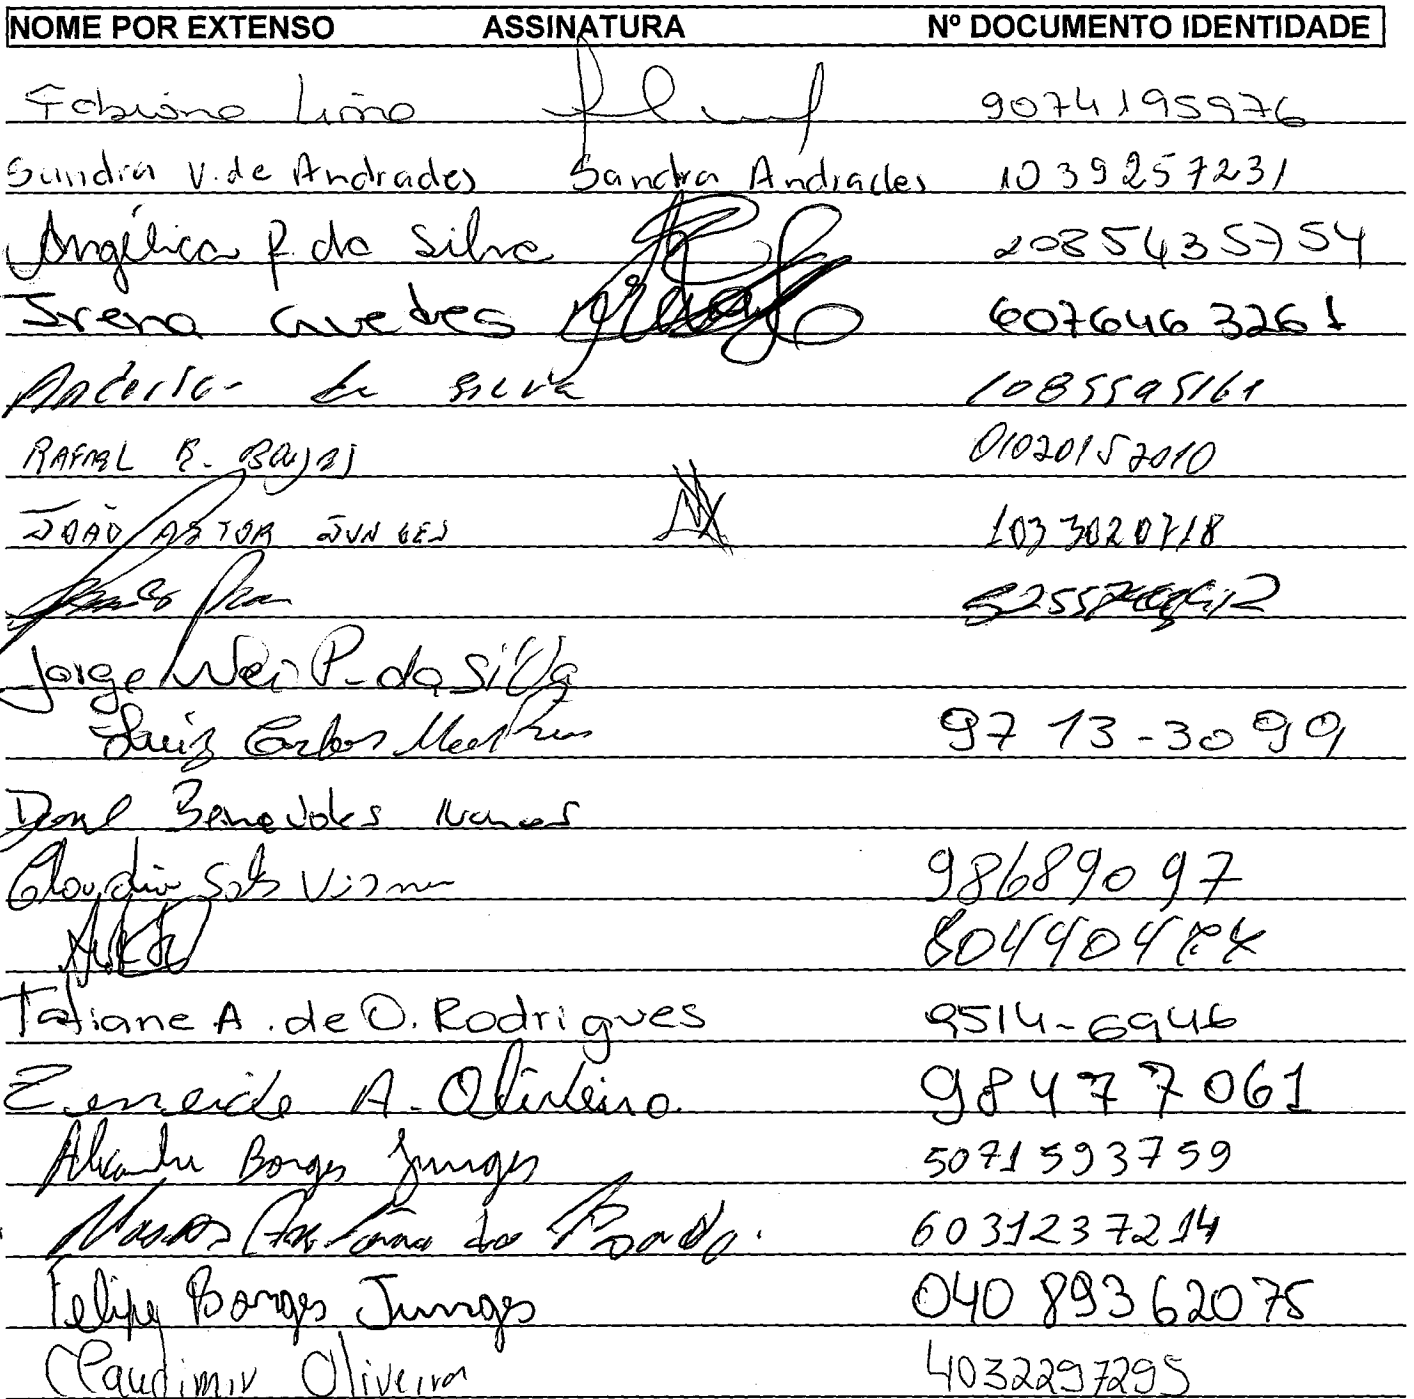 NOME POR EXTENSO ASSINATURA Nº DOCUMENTO IDENTIDADE
Fabiane Lima 9074195976
Sandra V. de Andrades Sandra Andrades 1039257231
Angélica P. da Silva 2085435754
Irena Guedes 6076463261
Anderson da Silva 1085595161
RAFAEL R. 01020152010
JOÃO ASTOR JUNGES 1033020718
Jorge Nei P. da Silva
Luiz Carlos 97 13-30 99
Benevides Nunes
Claudia 98689097
Tatiane A. de O. Rodrigues 9514-6946
Zeneide A. Oliveira 98477061
Borges Junges 5071593759
Marcos 6031237214
Felipe Borges Junges 04089362075
Claudimir Oliveira 4032297295